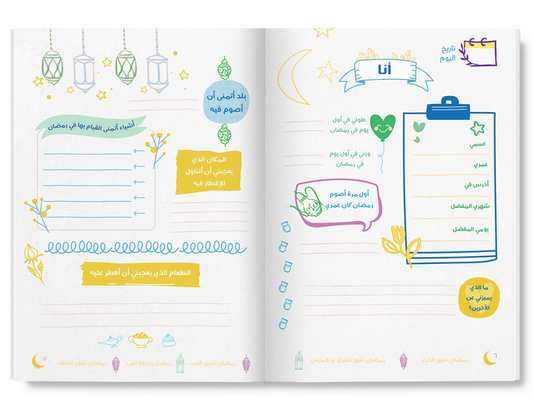 تاريخ
اليوم
أنا
اسمي
عمري
أدرس في
شهري المفضل
يومي المفضل
طولي في أول
يوم في رمضان
وزني في أول يوم
في رمضان
أول مرة أصوم
رمضان كان عمري
ما الذي
يميزني عن
الآخرين؟
بلد أتمنى أن
أصوم فيه
أشياء أتمنى القيام بها في رمضان
المكان الذي
يعجبني أن أتناول
الإفطار فيه
الطعام الذي يعجبني أن أفطر عليه